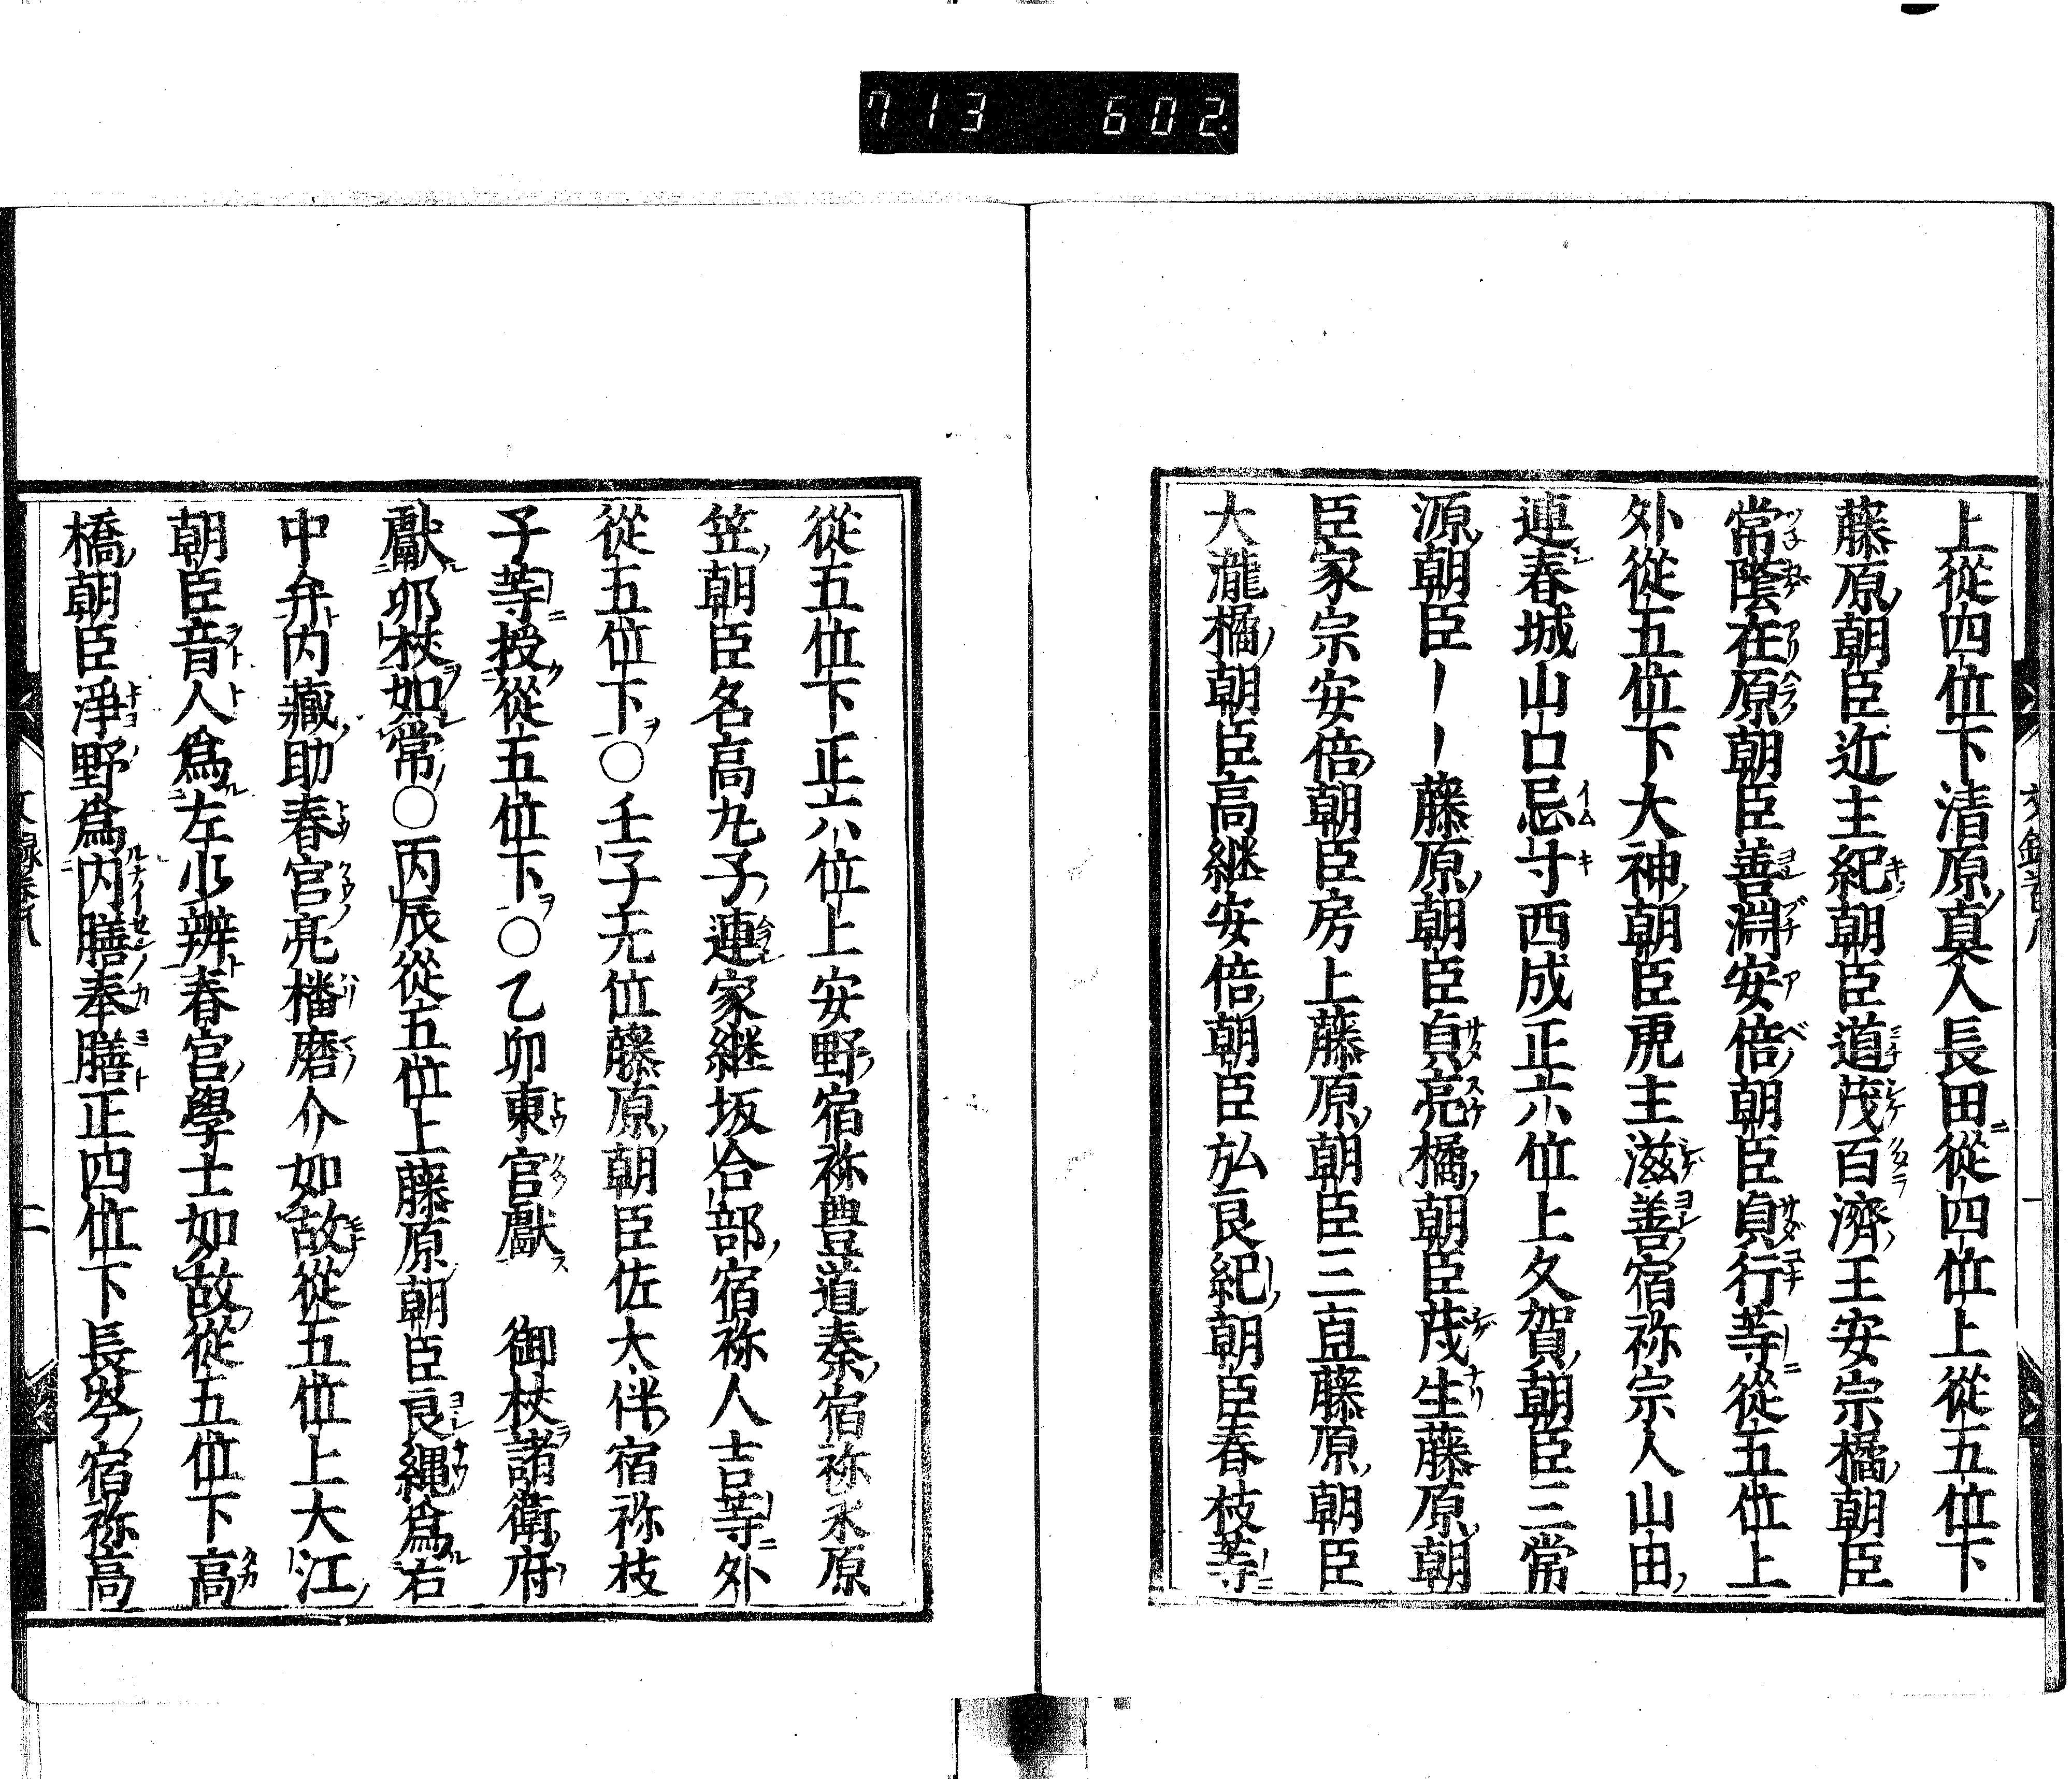 713 602.
上從四位下清原真人長田從四位上從五位下
藤原朝臣近主紀朝臣道茂百濟王安宗橘朝臣
常蔭在原朝臣善淵安倍朝臣貞行等從五位上
外從五位下大神朝臣虎主滋善宿祢宗人山田
連春城山口忌寸西成正六位上久賀朝臣三常
源朝臣——藤原朝臣貞亮橘朝臣茂生藤原朝
臣家宗安倍朝臣房上藤原朝臣三直藤原朝臣
大瀧橘朝臣高継安倍朝臣弘良紀朝臣春枝等
從五位下正六位上安野宿祢豊道秦宿祢永原
笠朝臣名高丸子連家継坂合部宿祢人吉等外
從五位下〇壬子无位藤原朝臣佐大伴宿祢枝
子等授從五位下〇乙卯東官獻 御杖諸衛府
獻卯杖如常〇丙辰從五位上藤原朝臣良縄為右
中弁内藏助春宮亮播磨介如故從五位上大江
朝臣音人為左少辨春宮學士如故從五位下高
橋朝臣淨野為内膳奉膳正四位下長岑宿祢高
二